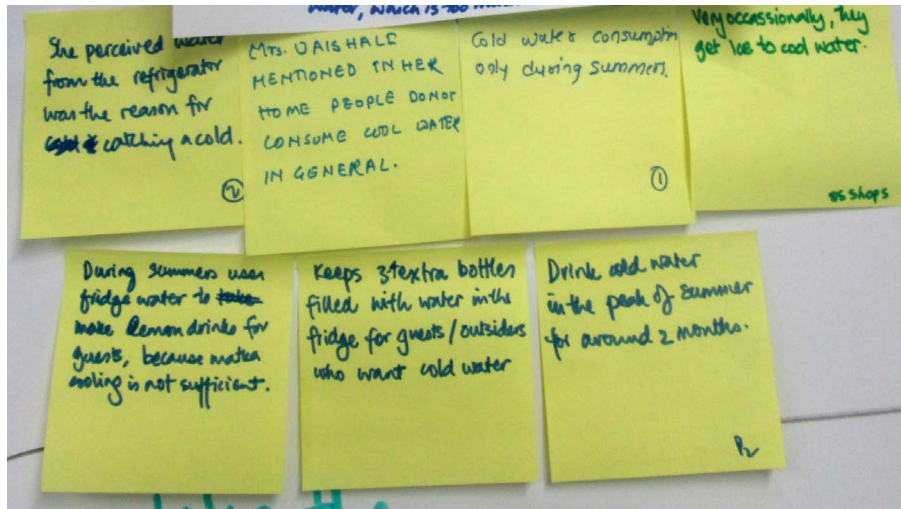 water, which is too
She perceived water
from the refrigerator
was the reason for
catching a cold.
2
Mrs. VAISHALI
MENTIONED IN HER
HOME PEOPLE DONOT
CONSUME COOL WATER
IN GENERAL.
Cold water consumption
only during summers.
1
Very occassionally, they
get ice to cool water.
ss shops
During summers uses
fridge water to take
make lemon drinks for
guests, because matka
cooling is not sufficient.
Keeps 3-4 extra bottles
filled with water in the
fridge for guests/outsiders
who want cold water
Drink cold water
in the peak of summer
for around 2 months.
P2